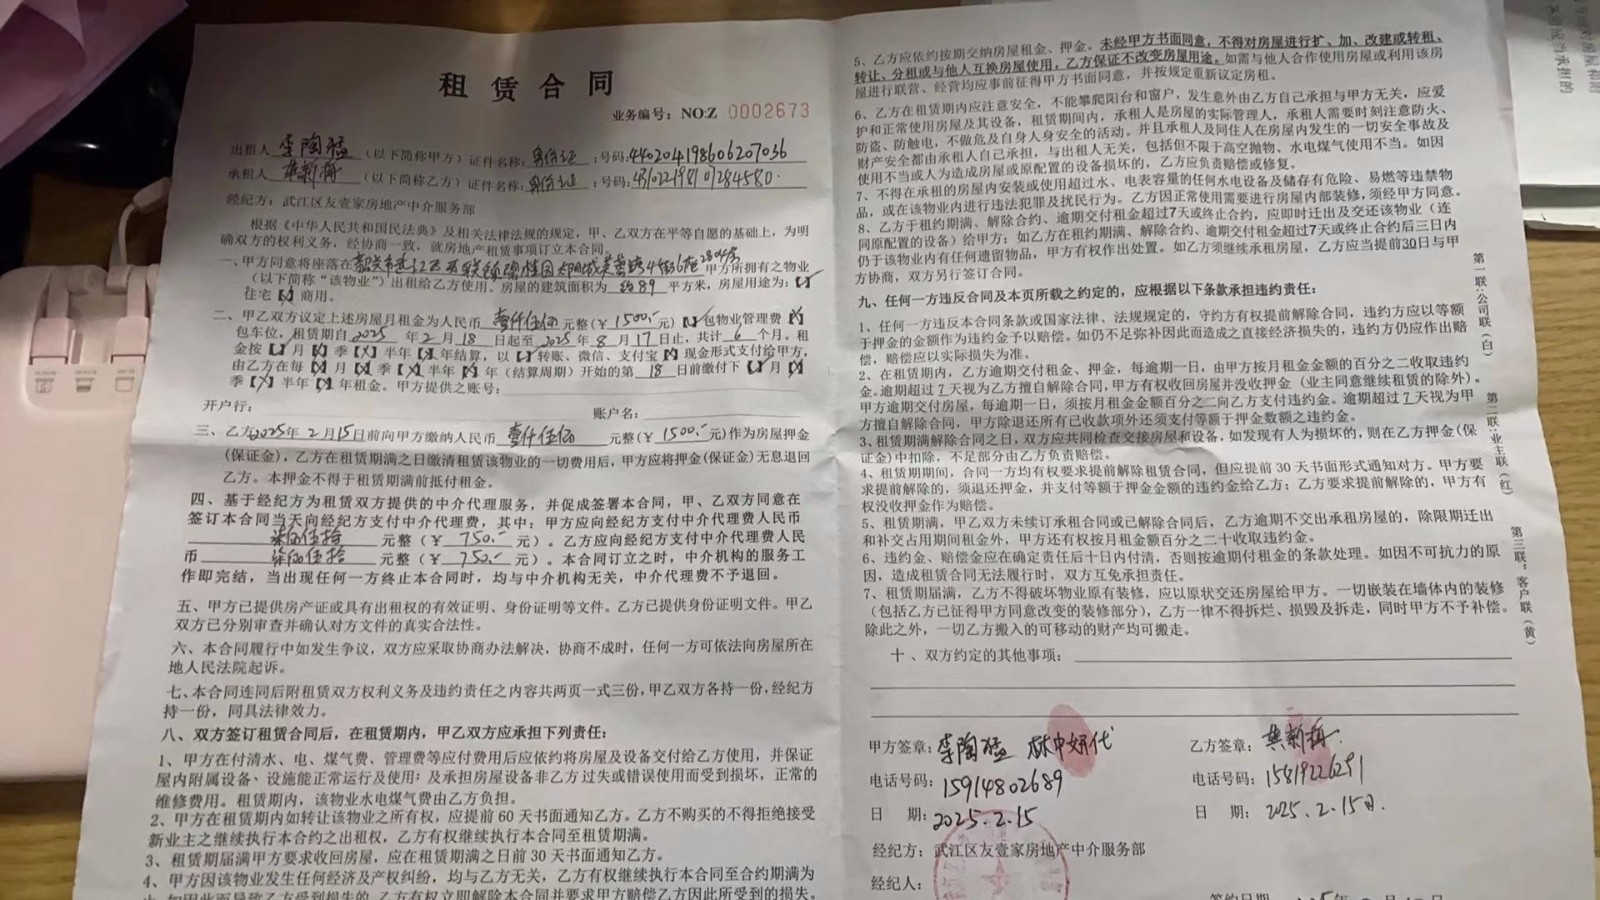 租赁合同
业务编号：NO:Z 0002673
出租人 李陶猛 （以下简称甲方）证件名称：身份证 ：号码：440204198606207036
承租人 （以下简称乙方）证件名称：身份证 ：号码：431022198101284580
经纪方：武江区友壹家房地产中介服务部
根据《中华人民共和国民法典》及相关法律法规的规定，甲、乙双方在平等自愿的基础上，为明
确双方的权利义务，经协商一致，就房地产租赁事项订立本合同。
一、甲方同意将座落在韶关市武江区西联镇碧桂园太阳城芙蓉路4街6座2804房 甲方所拥有之物业
（以下简称“该物业”）出租给乙方使用。房屋的建筑面积为 约89 平方米，房屋用途为：【√】
住宅【 】商用。
二、甲乙双方议定上述房屋月租金为人民币 壹仟伍佰 元整（¥ 1500.- 元）【√】包物业管理费【X】
包车位，租赁期自 2025 年 2 月 18 日起至 2025 年 8 月 17 日止，共计 6 个月。租
金按【√】月【X】季【X】半年【X】年结算，以【√】转账、微信、支付宝【X】现金形式支付给甲方，
由乙方在每【√】月【X】季【X】半年【X】年（结算周期）开始的第 18 日前缴付下【√】月【X】
季【X】半年【X】年租金。甲方提供之账号：
开户行： 账户名：
三、乙方2025年2月15日前向甲方缴纳人民币 壹仟伍佰 元整（¥ 1500.- 元）作为房屋押金
（保证金），乙方在租赁期满之日缴清租赁该物业的一切费用后，甲方应将押金（保证金）无息退回
乙方。本押金不得于租赁期满前抵付租金。
四、基于经纪方为租赁双方提供的中介代理服务，并促成签署本合同，甲、乙双方同意在
签订本合同当天向经纪方支付中介代理费，其中：甲方应向经纪方支付中介代理费人民币
柒佰伍拾 元整（¥ 750.- 元）。乙方应向经纪方支付中介代理费人民
币 柒佰伍拾 元整（¥ 750.- 元）。本合同订立之时，中介机构的服务工
作即完结，当出现任何一方终止本合同时，均与中介机构无关，中介代理费不予退回。
五、甲方已提供房产证或具有出租权的有效证明、身份证明等文件。乙方已提供身份证明文件。甲乙
双方已分别审查并确认对方文件的真实合法性。
六、本合同履行中如发生争议，双方应采取协商办法解决，协商不成时，任何一方可依法向房屋所在
地人民法院起诉。
七、本合同连同后附租赁双方权利义务及违约责任之内容共两页一式三份，甲乙双方各持一份，经纪方
持一份，同具法律效力。
八、双方签订租赁合同后，在租赁期内，甲乙双方应承担下列责任：
1、甲方在付清水、电、煤气费、管理费等应付费用后应依约将房屋及设备交付给乙方使用，并保证
屋内附属设备、设施能正常运行及使用；及承担房屋设备非乙方过失或错误使用而受到损坏，正常的
维修费用。租赁期内，该物业水电煤气费由乙方负担。
2、甲方在租赁期内如转让该物业之所有权，应提前60天书面通知乙方。乙方不购买的不得拒绝接受
新业主之继续执行本合约之出租权，乙方有权继续执行本合同至租赁期满。
3、租赁期届满甲方要求收回房屋，应在租赁期满之日前30天书面通知乙方。
4、甲方因该物业发生任何经济及产权纠纷，均与乙方无关，乙方有权继续执行本合同至合约期满为
止，如因此而导致乙方受到损失的，乙方有权立即解除本合同并要求甲方赔偿乙方因此所受到的损失。
5、乙方应依约按期交纳房屋租金、押金。未经甲方书面同意，不得对房屋进行扩、加、改建或转租、
转让、分租或与他人互换房屋使用，乙方保证不改变房屋用途。如需与他人合作使用房屋或利用该房
屋进行联营、经营均应事前征得甲方书面同意，并按规定重新议定房租。
6、乙方在租赁期内应注意安全，不能攀爬阳台和窗户，发生意外由乙方自己承担与甲方无关，应爱
护和正常使用房屋及其设备，租赁期间内，承租人是房屋的实际管理人，承租人需要时刻注意防火、
防盗、防触电，不做危及自身人身安全的活动。并且承租人及同住人在房屋内发生的一切安全事故及
财产安全都由承租人自己承担，与出租人无关，包括但不限于高空抛物、水电煤气使用不当。如因
使用不当或人为造成房屋或原配置的设备损坏的，乙方应负责赔偿或修复。
7、不得在承租的房屋内安装或使用超过水、电表容量的任何水电设备及储存有危险、易燃等违禁物
品，或在该物业内进行违法犯罪及扰民行为。乙方因正常使用需要进行房屋内部装修，须经甲方同意。
8、乙方于租约期满、解除合约、逾期交付租金超过7天或终止合约，应即时迁出及交还该物业（连
同原配置的设备）给甲方；如乙方在租约期满、解除合约、逾期交付租金超过7天或终止合约后三日内
仍于该物业内有任何遗留物品，甲方有权作出处置。如乙方须继续承租房屋，乙方应当提前30日与甲
方协商，双方另行签订合同。
九、任何一方违反合同及本页所载之约定的，应根据以下条款承担违约责任：
1、任何一方违反本合同条款或国家法律、法规规定的，守约方有权提前解除合同，违约方应以等额
于押金的金额作为违约金予以赔偿。如仍不足弥补因此而造成之直接经济损失的，违约方仍应作出赔
偿，赔偿应以实际损失为准。
2、在租赁期内，乙方逾期交付租金、押金，每逾期一日，由甲方按月租金金额的百分之二收取违约
金。逾期超过7天视为乙方擅自解除合同，甲方有权收回房屋并没收押金（业主同意继续租赁的除外）。
甲方逾期交付房屋，每逾期一日，须按月租金金额百分之二向乙方支付违约金。逾期超过7天视为甲
方擅自解除合同，甲方除退还所有已收款项外还须支付等额于押金数额之违约金。
3、租赁期满解除合同之日，双方应共同检查交接房屋和设备，如发现有人为损坏的，则在乙方押金（保
证金）中扣除，不足部分由乙方负责赔偿。
4、租赁期期间，合同一方均有权要求提前解除租赁合同，但应提前30天书面形式通知对方。甲方要
求提前解除的，须退还押金，并支付等额于押金金额的违约金给乙方；乙方要求提前解除的，甲方有
权没收押金作为赔偿。
5、租赁期满，甲乙双方未续订承租合同或已解除合同后，乙方逾期不交出承租房屋的，除限期迁出
和补交占用期间租金外，甲方还有权按月租金额百分之二十收取违约金。
6、违约金、赔偿金应在确定责任后十日内付清，否则按逾期付租金的条款处理。如因不可抗力的原
因，造成租赁合同无法履行时，双方互免承担责任。
7、租赁期届满，乙方不得破坏物业原有装修，应以原状交还房屋给甲方。一切嵌装在墙体内的装修
（包括乙方已征得甲方同意改变的装修部分），乙方一律不得拆烂、损毁及拆走，同时甲方不予补偿。
除此之外，一切乙方搬入的可移动的财产均可搬走。
十、双方约定的其他事项：
甲方签章：李陶猛 代
乙方签章：
电话号码：15914802689
电话号码：15819226291
日 期：2025.2.15
日 期：2025.2.15日.
经纪方：武江区友壹家房地产中介服务部
经纪人：
签约日期
第一联：公司联（白）
第二联：业主联（红）
第三联：客户联（黄）